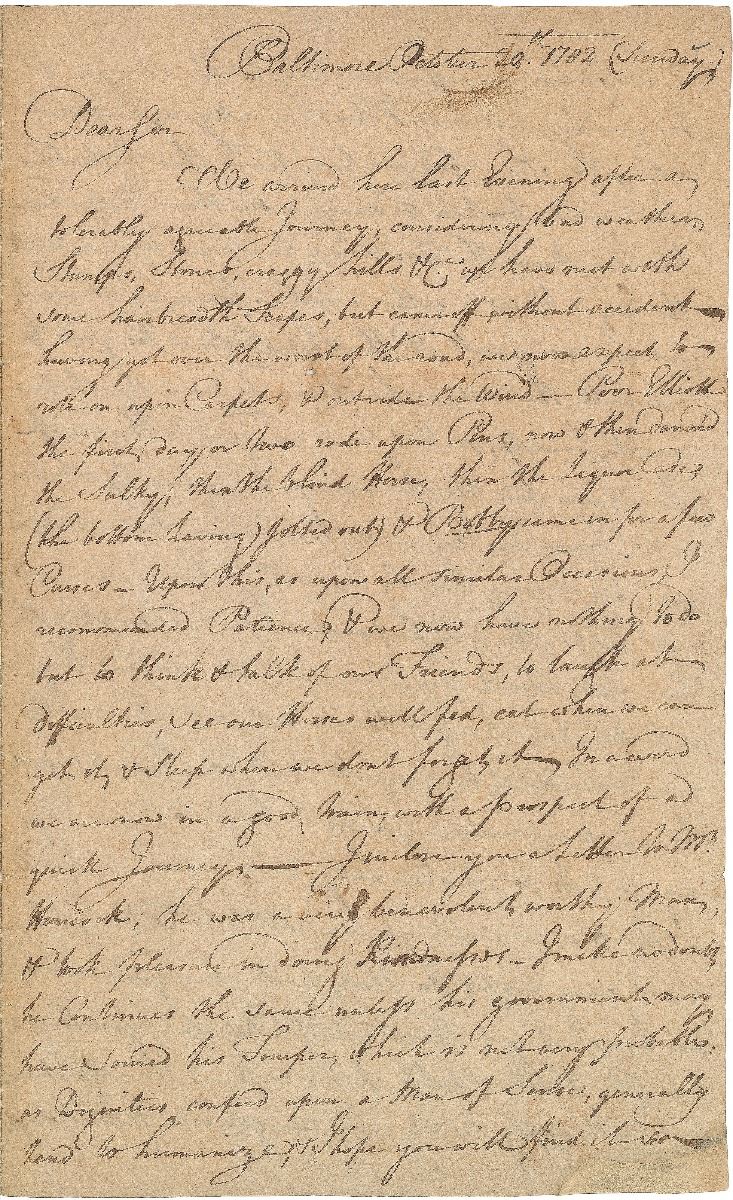 Baltimore October 20th 1782 (Sunday)
Dear Sir
We arrived here last Evening after a
tolerably agreeable Journey, considering bad weather,
Stumps, Stones, craggy hills &c we have met with
some hairbreadth Scapes, but came off without accident
having got over the worst of the road, we now expect to
roll on upon Carpets, & outride the Wind — Poor Elliott
the first day or two rode upon Pins, now & then damn'd
the Sulky, then the blind Horse, then the liquor Case,
(the bottom having jolted out) & Bobby came in for a few
Curses — Upon this, as upon all similar Occasions, I
recommended Patience, & we now have nothing to do
but to think & talk of our Friends, to laugh at
difficulties, see our Horses well fed, eat when we can
get it, & Sleep when we dont forget it — In a word
we are now in a good train, with a prospect of a
quick Journey, — I inclose you a Letter to Mr
Hancock, he was a very benevolent, worthy Man,
& took pleasure in doing Kindnesses — I make no doubt
he Continues the same unless his government may
have soured his Temper, which is not very probable,
as Dignities confer'd upon a Man of Sense, generally
tend to humanize, & I hope you will find it so